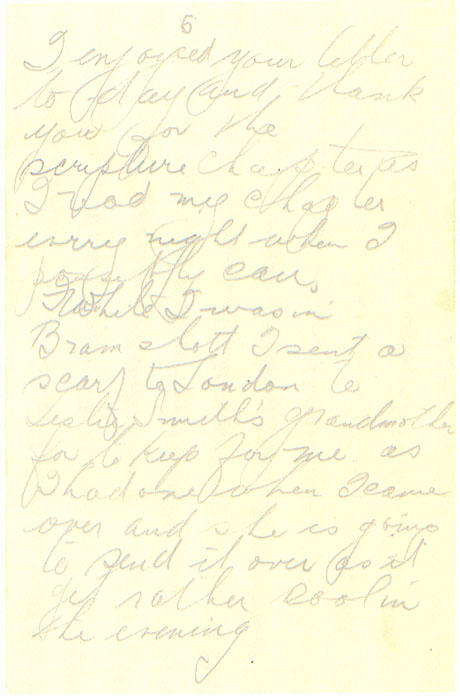 5
I enjoyed your letter
to day and thank
you for the
scripture chapter as
I read my chapter
every night when I
possibly can,
While I was in
Bramshott I sent a
scarf to London to
Leslie Smith's grandmother
for to keep for me as
I had one when I came
over and she is going
to send it over as it
get rather cool in
the evening